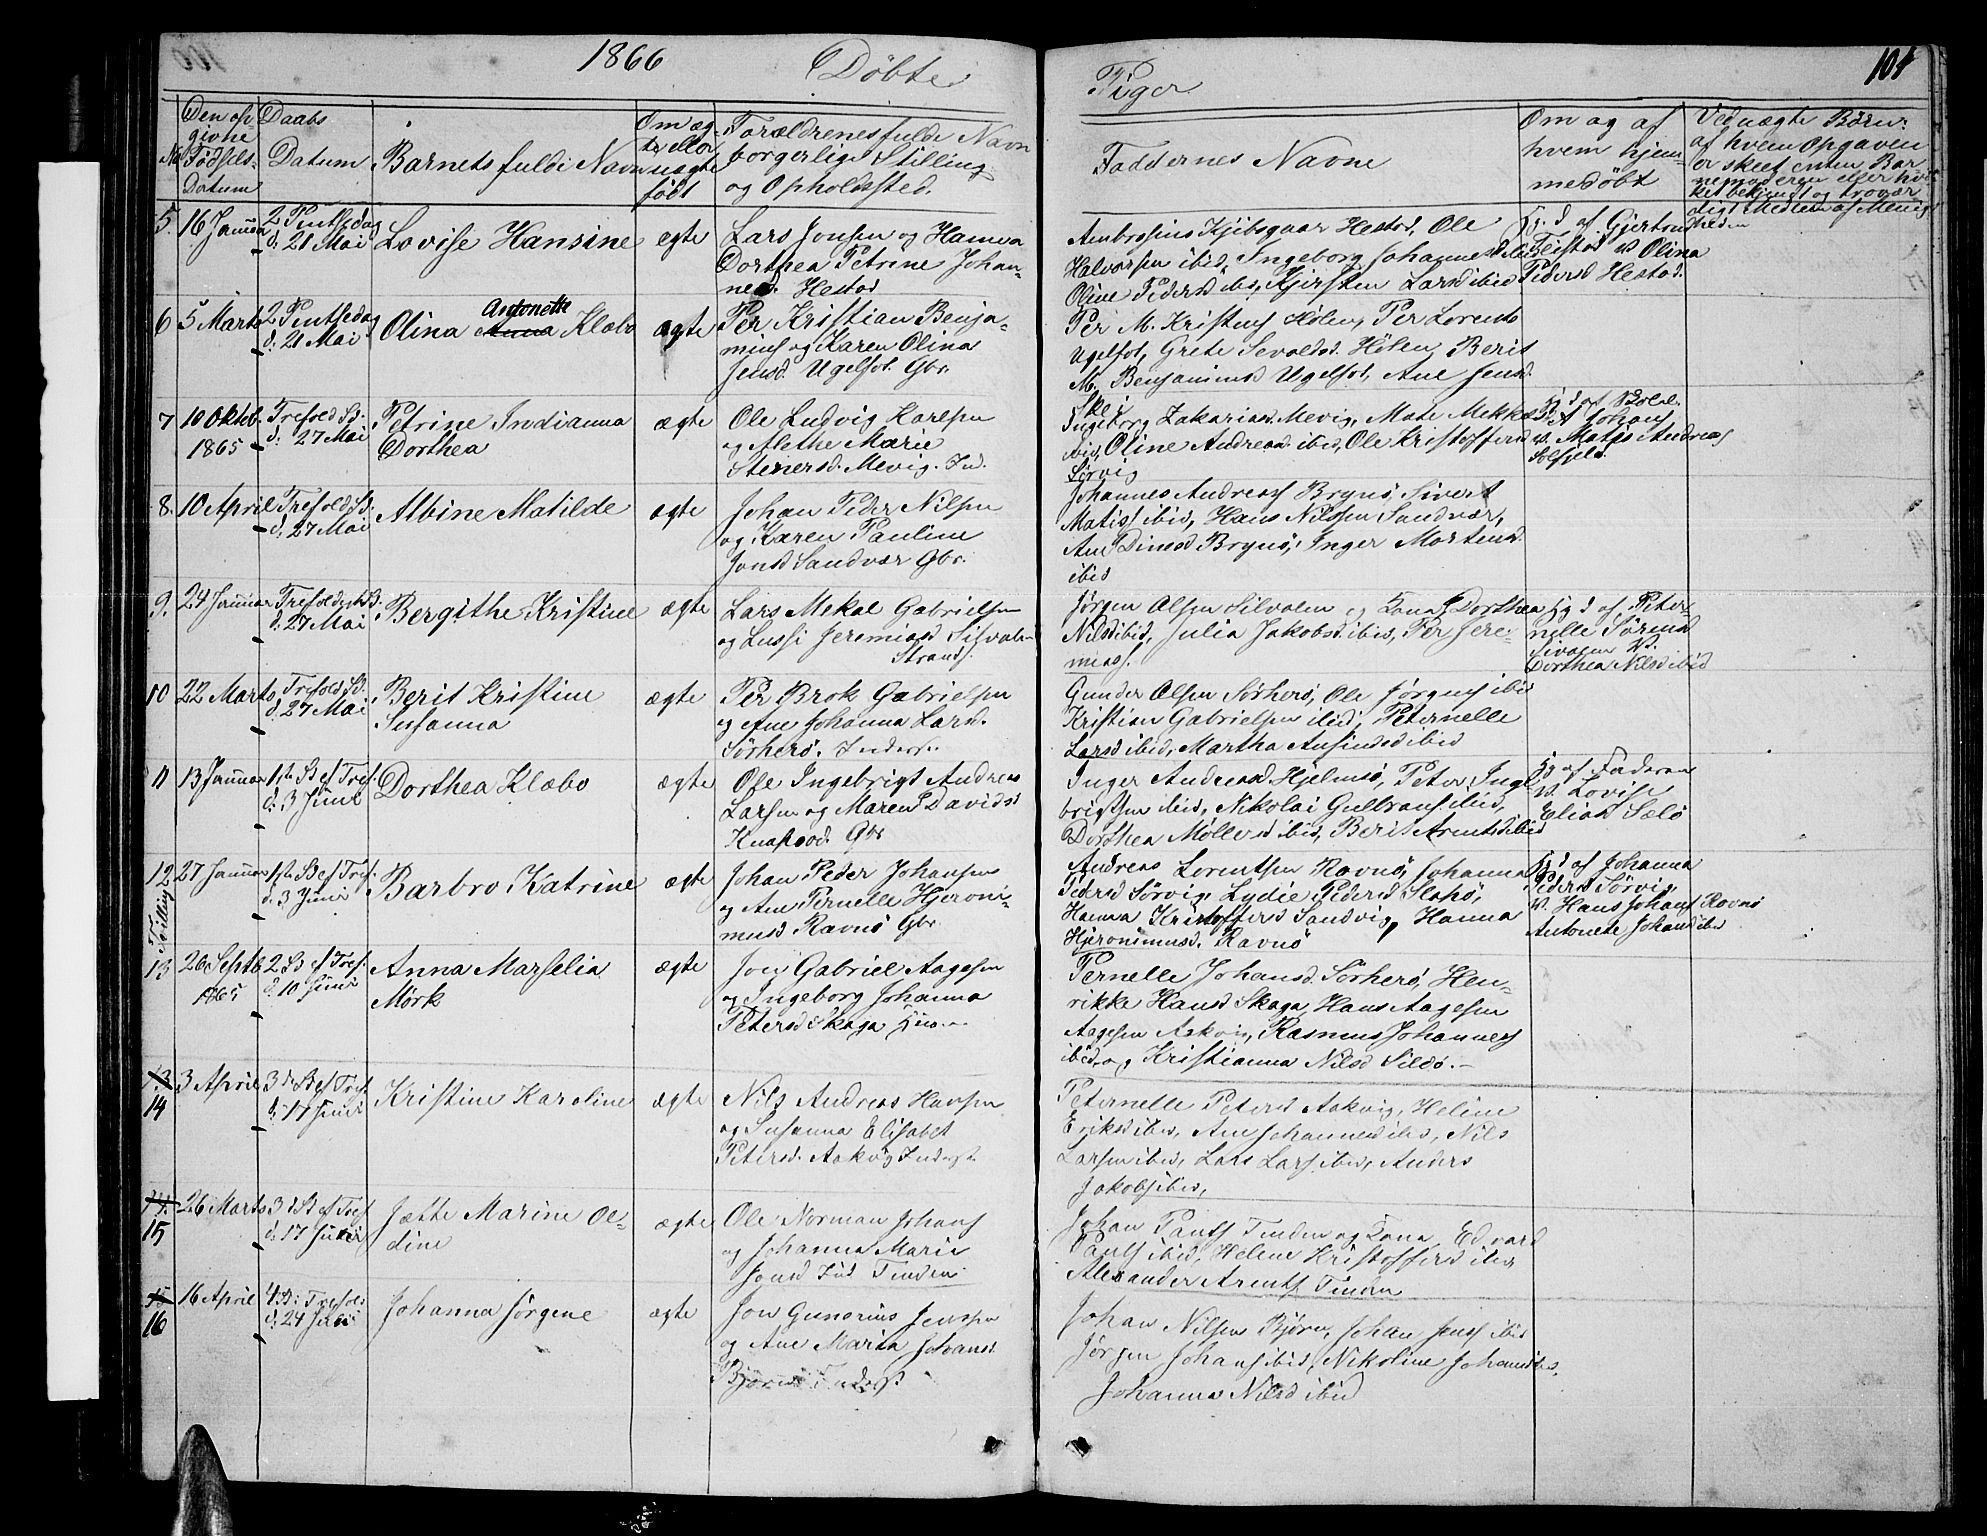 1866
Døbte
Piger
101
No
Den op
givne
Fødsels-
Datum
Daabs
Datum
Barnets fulde Navn
Om æg-
te eller
uægte
født
Forældrenes fulde Navn
borgerlige Stilling
og Opholdssted.
Faddernes Navne
Om og af
hvem hjem-
medøbt
Ved uægte Børn:
af hvem Opgaven
er skeet enten Bar
nemoderen eller hvil
ket bekjendt og troværdigt Medlem af Menig
heden
5. 16 Januar
2 Pintsedag
d. 21 Mai
Lovise Hansine
egte
Lars Jonsen og Hanna
Dorthea Petrine Johan-
nesd. Hestad
Ambrosius Kjibsgaar Hestad, Ole
Halvorsen ibid, Ingeborg Johannesd ibid
Oline Pedersd ibid, Kjersten Larsd ibid
Hj. d. af Gjertrud
Flistad v Olina
Pedersd Hestad.
6 5 Marts
2 Pintsedag
d: 21 Mai
Antonette
Olina Anna Klæbo
ægte
Per Kristian Benja-
mins og Karen Olina
Jensd. Ugelfot. Gbr.
Per M. Kristens Holen, Per Lorents
Ugelfot, Grete Sevaldsd. Holen Berit
M. Benjaminsd Ugelfot, Ane Jensd.
Skei
7 10 Oktob.
1865
Trefold Sd.
d: 27 Mai
Petrine Indianna
Dorthea
ægte
Ole Ludvig Karlsen
og Alethe Marie
Steinersd. Mevig. Ind.
Ingeborg Zakariasd. Mevig, Mate Mekkelsd
ibid, Oline Andreasd. ibid, Ole Kristoffersen
Sørvig
Hj d af
Johans
v. Matis Andreas
Solfjeld.
8. 10 April
Trefold Sd.
d. 27 Mai
Albine Matilde
ægte
Johan Peder Nilsen
og Karen Pauline
Jonsd Sandvær Gbr.
Johannes Andreass Brynø, Sivert
Matiss ibid, Hans Nilssen Sandvær,
Ane Dinesd Brynø, Inger Mortensd.
ibid
9. 24 Januar
d. 27 Mai
Bergithe Kristine
ægte
Lars Mekal Gabrielsen
og Lussi Jeremiasd Silvalen
Strands.
Jørgen Olsen Silvalen og Kona Dorthea
Nilsd ibid, Julia Jakobsd. ibid, Per Jere-
miass.
Hj d af Peter-
nelle Sørensd
Silvalen v.
Dorthea Nilsd ibid
10 22 Marts
Trefold Sd.
d. 27 Mai
Berit Kristine
Susanna
ægte
Per Brok Gabrielsen
og Ane Johanna Larsd.
Sørherø. Inderst.
Gunder Olsen Sørherø, Ole Jørgens ibid
Kristian Gabrielsen ibid, Peternelle
Larsd ibid, Martha Ansinsd ibid
11 13 Januar
1ste Sd ef Tref.
d. 3 Juni
Dorthea Klæbo
ægte
Ole Ingebrigt Andreas
Larsen og Maren Davidsd
Gbr
Inger Andreasd. Hjelmsø, Peter Inge
brigtsen ibid, Nikolai Gulbrans ibid,
Dorthea Møllersd ibid, Berit Arentsd ibid
Hj af Faderen
v. Lovise
Eliasd Sælø
12 27 Januar
Tvilling
1ste Sd ef Tref.
d. 3 Juni
Barbro Katrine
ægte
Johan Peder Johansen
og Ane Pernelle Hjeroni-
musd Ravnø Gbr.
Andreas Lorentsen Ravnø, Johanna
Pedersd Sørvig, Lydie Pedersd Slapø,
Hanna Kristoffersd Sandvig, Hanna
Hjeronimusd. Ravnø
Hj d af Johanna
Pedersd Sørvig
v. Hans Johans Ravnø
Antonete Johansd ibid
13 26 Septb.
1865
2 Sd ef Tref.
d. 10 Juni
Anna Marselia
Mørk
ægte
Jon Gabriel Aagesen
og Ingeborg Johanna
Petersd Skaga
Pernelle Johansd. Sørherø, Hen-
rikke Hansd Skaga, Hans Aagesen
Aagesen Aakvig, Rasmus Johannes
ibid, og Kristianna Nilsd Sildø.
13
14
3 April
3die Sd ef Tref.
d. 17 Juni
Kristine Karoline
ægte
Nils Andreas Hansen
og Susanna Elisabet
Petersd. Aakvig Inderst
Peternelle Petersd Aakvig, Heline
Eriksd ibid, Ane Johannesd ibid, Nils
Larsen ibid, Lars Lars ibid, Anders
Jakobs ibid,
14.
15
26 Marts
3d Sd ef Tref
d. 17 Juni
Jætte Marine Ol-
dine
ægte
Ole Norman Johans
og Johanna Marie
Jonsd Ind Tinden
Johan Pauls Tinden og Kona, Edvard
Pauls ibid, Helene Kristoffersd ibid
Alexander Arents Tinden
15
16
16 April
4 Sd: Trefold
d. 24 Juni
Johanna Jørgene
ægte
Jon Gunerius Jenssen
og Ane Maria Johansd
Bjørn Inderst
Johan Nilsen Bjørn, Johan Jens ibid
Jørgen Johans ibid, Nikoline Johansd ibid,
Johanna Nilsd ibid